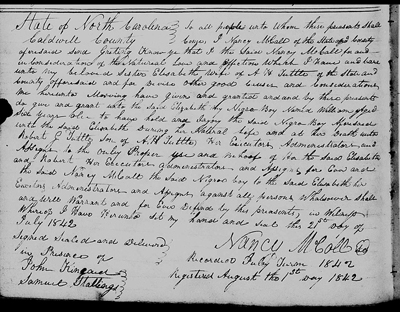 State of North Carolina } To all people unto Whom these presents Shall
Caldwell County } Come, I Nancy McCall of the State and County
aforesaid Send Greeting Know ye that I the Said Nancy McCall for and
in Consideration of the Natureal Love and affections Which I Have and bare
unto my beloved Sister Elizabeth Wife of A H Tuttle of the State and
County afforesaid and for Divers other good Causes and Considerations
me hereunto Moveing Have given and granted and and by these presents
do give and grant unto the Said Elizabeth My Negroe Boy Named William aged
Six years old to have hold and Enjoy the Said Negroe Boy
unto the Said Elizabeth During her Natural life and at Her Death unto
Robert S Tuttle Son of A H Tuttle Her Executors, Administrators, and
Assigns to the only Proper use and behoof of Her the Said Elizabeth
and Robert Her Executors, administrators and Assigns for Ever and
the Said Nancy McCall the Said Negroe boy to the Said Elizabeth her
Executors, Administrators and Assigns against all persons Whatsoever Shall
and Will Warrant and for Ever Defend by these presents, in Witness
Whereof I Have Hereunto Set my Hand and Seal this 21st Day of
July 1842
Signed Sealed and Delivered } Nancy McCall
in Presence of } Recorded July Term 1842
John Kincaid } Registered August the 1st day 1842
Samuel Stallings